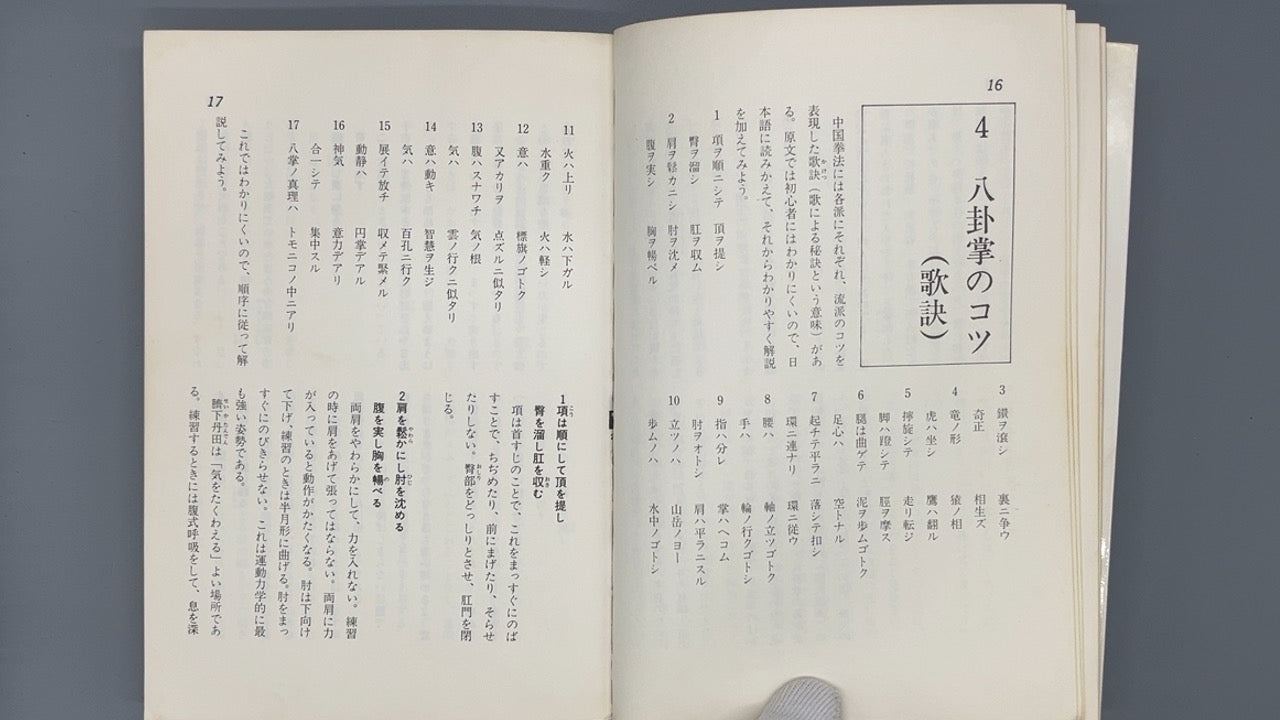 16
4 八卦掌のコツ
(歌訣)
中国拳法には各派にそれぞれ、流派のコツを
表現した歌訣(歌による秘訣という意味)があ
る。原文では初心者にはわかりにくいので、日
本語に読みかえて、それからわかりやすく解説
を加えてみよう。
1 項ヲ順ニシテ 頂ヲ提シ
臀ヲ溜シ 肛ヲ収ム
2 肩ヲ鬆カニシ 肘ヲ沈メ
腹ヲ実シ 胸ヲ暢ベル
3 鑽ヲ滾シ 裏ニ争ウ
奇正 相生ズ
4 竜ノ形 猿ノ相
虎ハ坐シ 鷹ハ翻ル
5 擰旋シテ 走リ転ジ
脚ハ蹬シテ 脛ヲ摩ス
6 腿は曲ゲテ 泥ヲ歩ムゴトク
足心ハ 空トナル
7 起チテ平ラニ 落シテ扣シ
環ニ連ナリ 環ニ従ウ
8 腰ハ 軸ノ立ツゴトク
手ハ 輪ノ行クゴトシ
9 指ハ分レ 掌ハヘコム
肘ヲオトシ 肩ハ平ラニスル
10 立ツノハ 山岳ノヨー
歩ムノハ 水中ノゴトシ
17
11 火ハ上リ 水ハ下ガル
水重ク 火ハ軽シ
12 意ハ 標旗ノゴトク
又アカリヲ 点ズルニ似タリ
13 腹ハスナワチ 気ノ根
気ハ 雲ノ行クニ似タリ
14 意ハ動キ 智慧ヲ生ジ
気ハ 百孔ニ行ク
15 展イテ放チ 収メテ緊メル
動静ハ 円掌デアル
16 神気ハ 意力デアリ
合一シテ 集中スル
17 八掌ノ真理ハ トモニコノ中ニアリ
これではわかりにくいので、順序に従って解
説してみよう。
1項は順にして頂を提し
臀を溜し肛を収む
項は首すじのことで、これをまっすぐにのば
すことで、ちぢめたり、前にまげたり、そらせ
たりしない。臀部をどっしりとさせ、肛門を閉
じる。
2肩を鬆かにし肘を沈める
腹を実し胸を暢べる
両肩をやわらかにして、力を入れない。練習
の時に肩をあげて張ってはならない。両肩に力
が入っていると動作がかたくなる。肘は下向け
て下げ、練習のときは半月形に曲げる。肘をまっ
すぐにのびきらせない。これは運動力学的に最
も強い姿勢である。
臍下丹田は「気をたくわえる」よい場所であ
る。練習するときには腹式呼吸をして、息を深